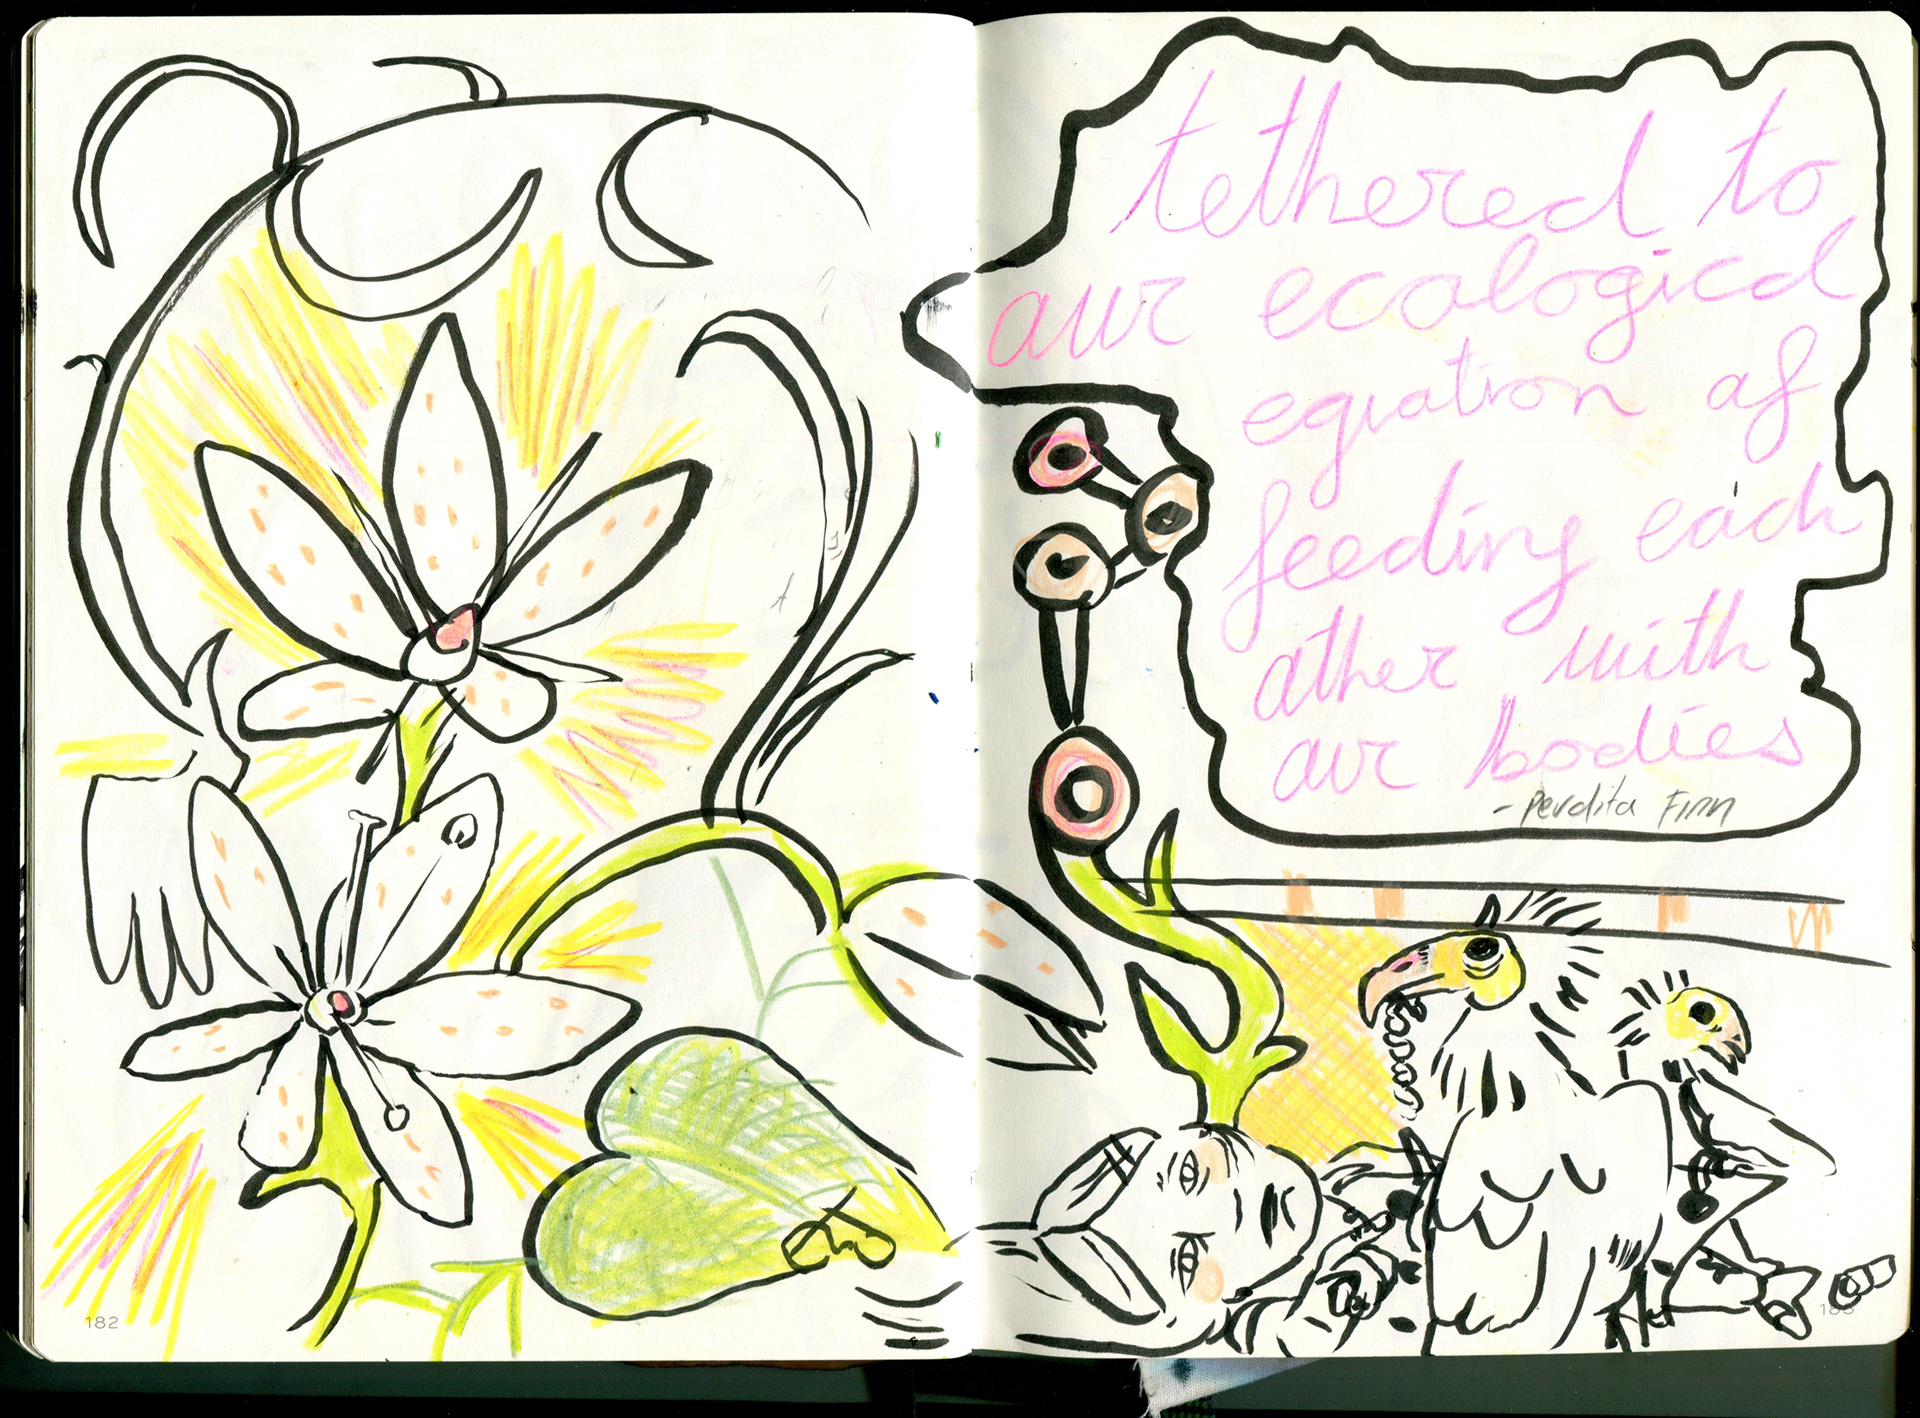 tethered to
our ecological
equation of
feeding each
other with
our bodies
- Perdita Finn
182
183